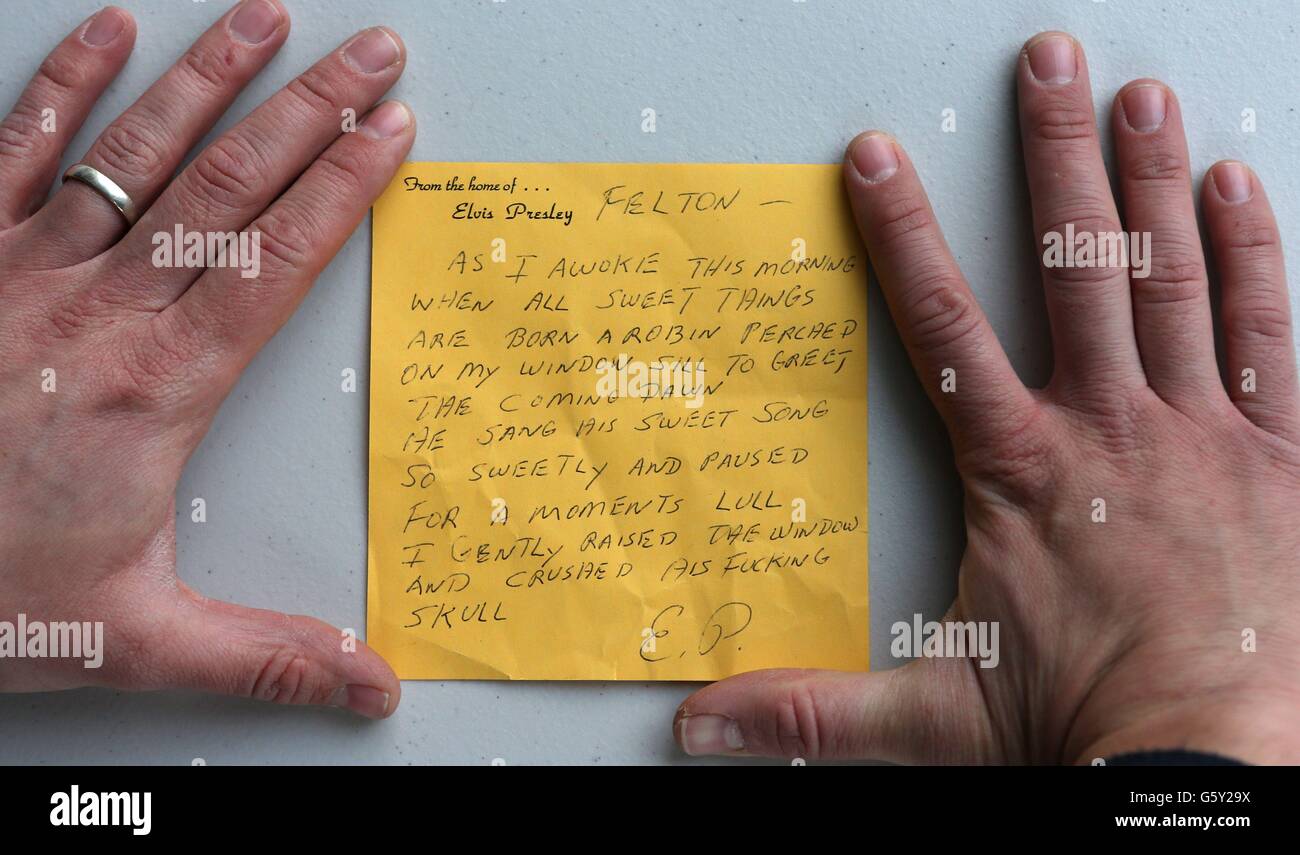 From the home of . . .
Elvis Presley
FELTON —
AS I AWOKE THIS MORNING
WHEN ALL SWEET THINGS
ARE BORN A ROBIN PERCHED
ON MY WINDOW SILL TO GREET
THE COMING DAWN
HE SANG HIS SWEET SONG
SO SWEETLY AND PAUSED
FOR A MOMENTS LULL
I GENTLY RAISED THE WINDOW
AND CRUSHED HIS FUCKING
SKULL
E.P.
alamy
a
alamy
Image ID: G5Y29X
www.alamy.com